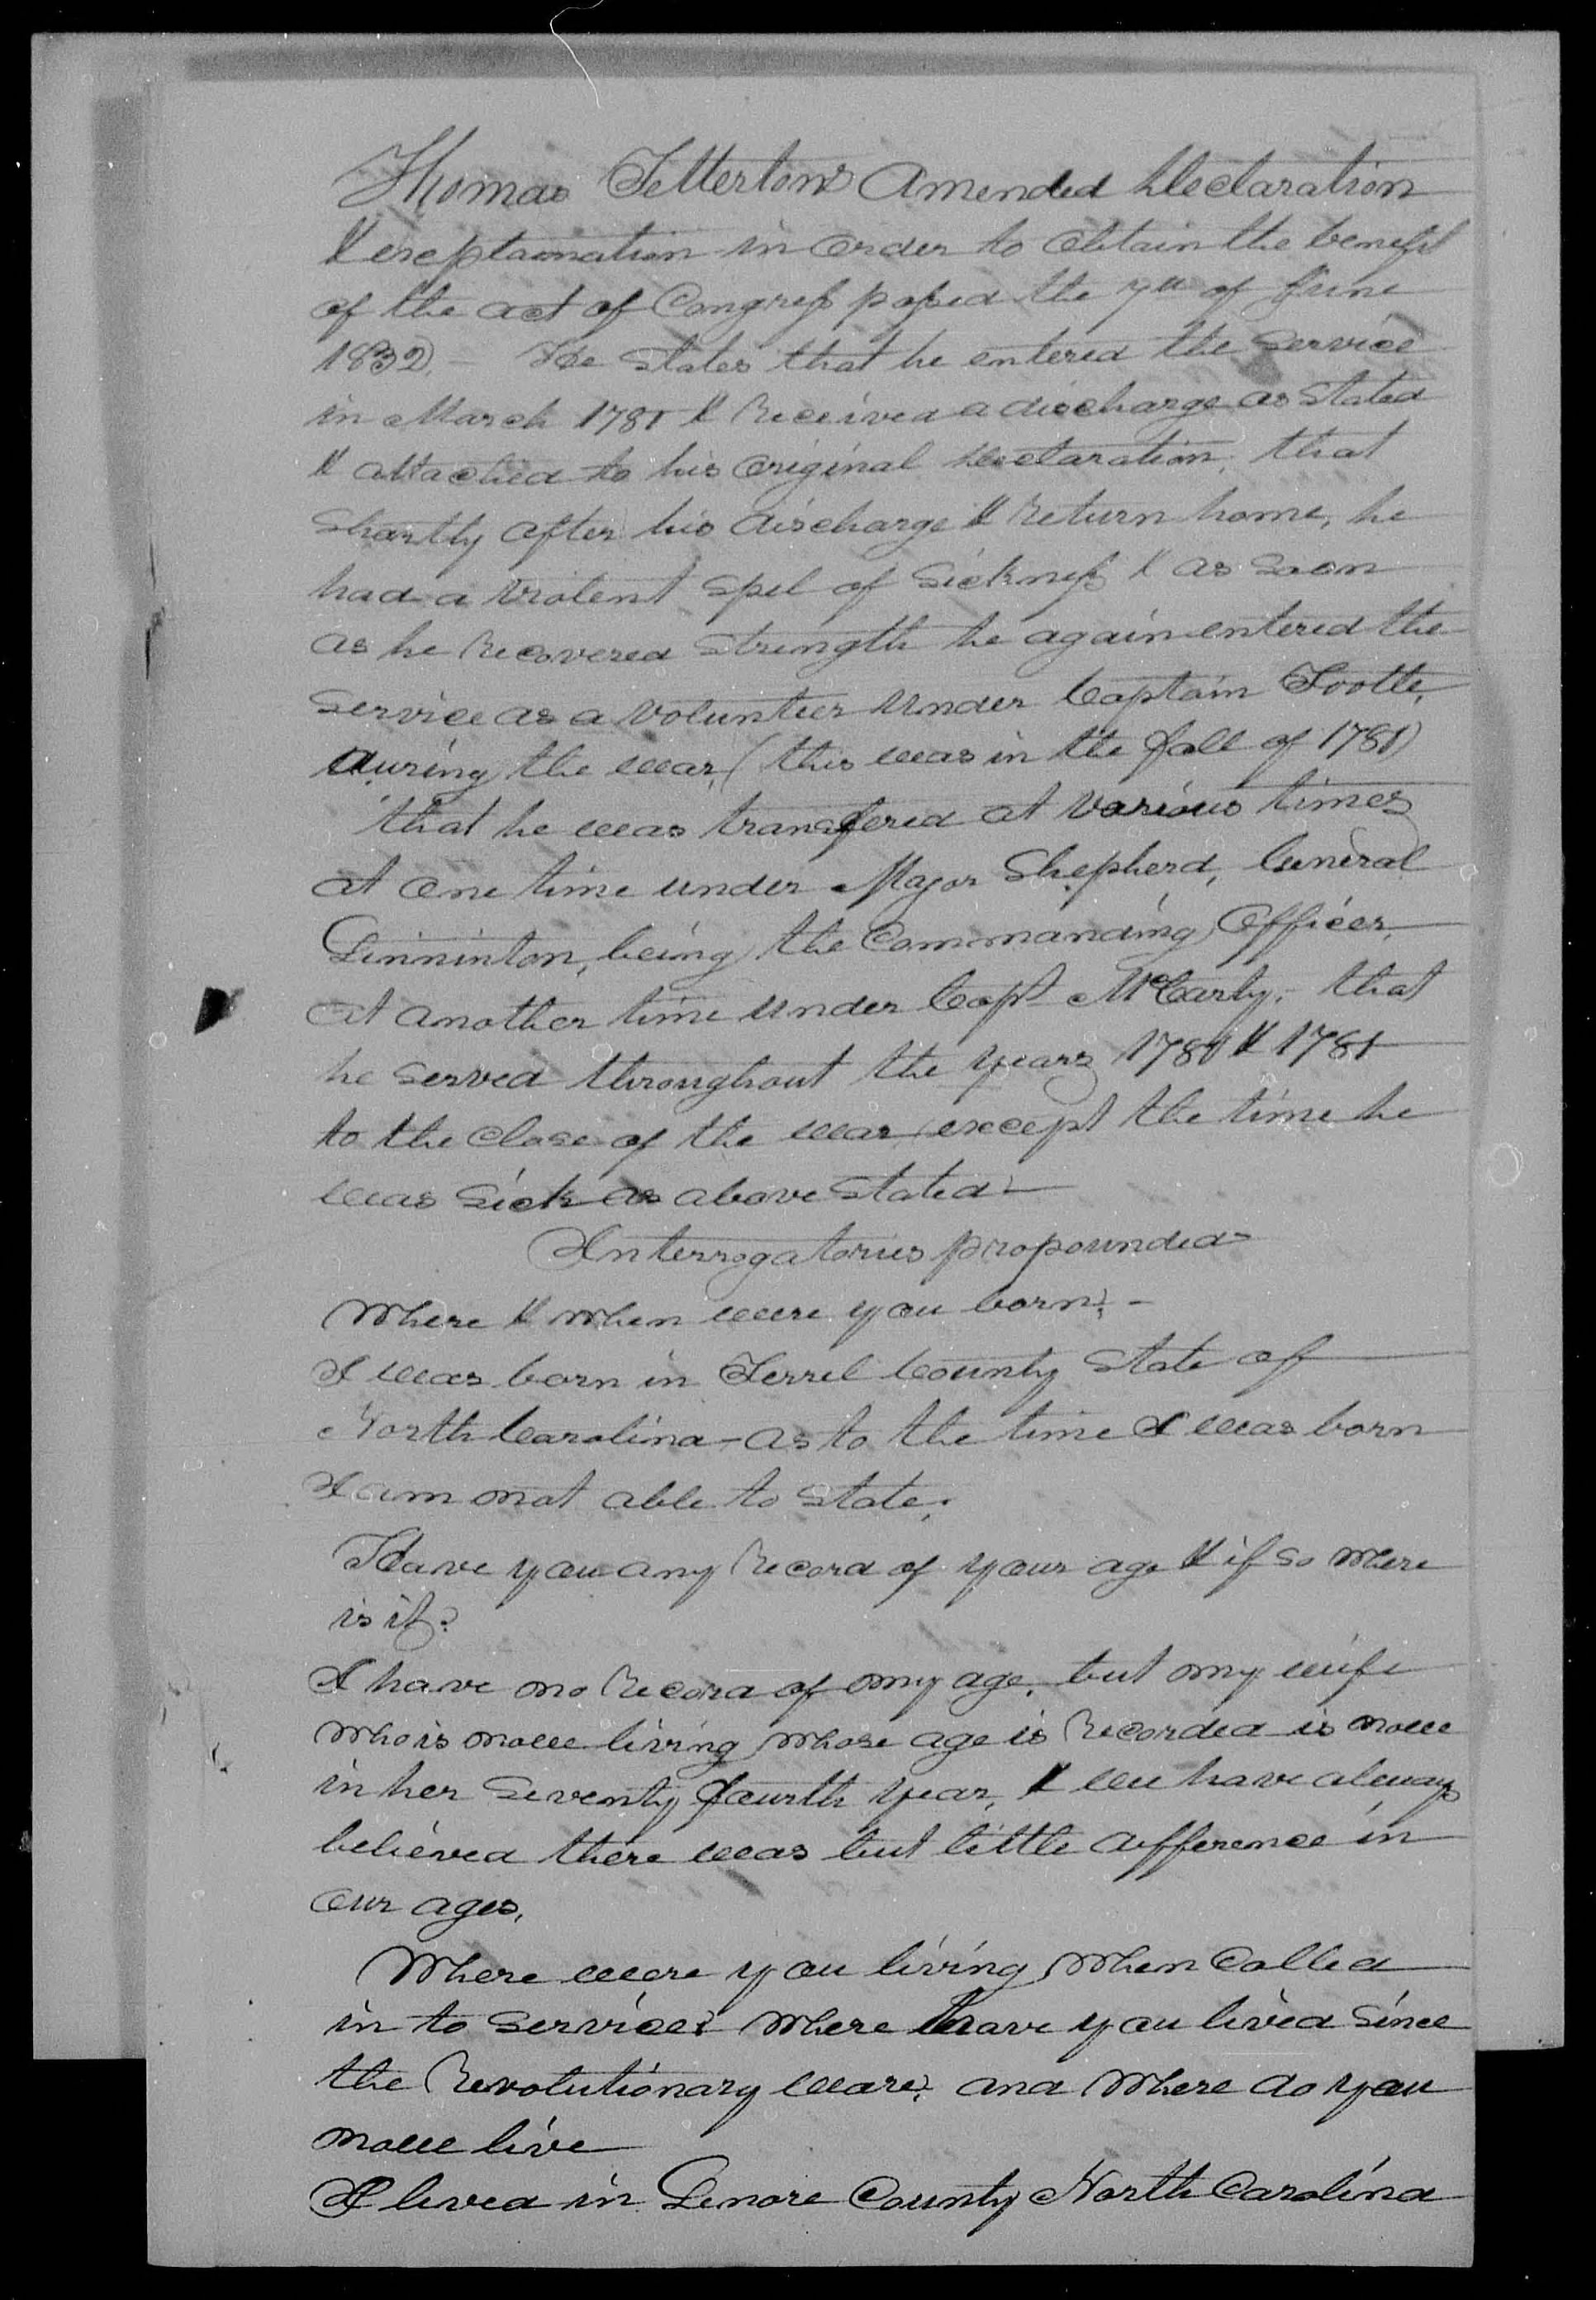 Thomas Tetterton's Amended Declaration
& explanation in order to obtain the benefit
of the act of Congress passed the 7th of June
1832. – He states that he entered the service
in March 1781 & Received a discharge as stated
& attached to his original declaration, that
Shortly after his discharge & Return home, he
had a violent spel of sickness & as soon
as he Recovered strength he again entered the
service as a volunteer under Captain Tootle,
during the war, (this was in the fall of 1781)
that he was transfered at various times
at one time under Major Shepherd, General
Linninton, being the Commanding Officer,
at another time under Capt McCarty, – that
he served throughout the years 1780 & 1781
to the close of the war except the time he
was sick as above stated –
Interrogatories propounded
Where & when were you born? –
I was born in Terrel County State of
North Carolina – as to the time I was born
I am not able to state.
Have you any Record of your age & if so where
is it?
I have no Record of my age, but my wife
who is now living whose age is Recorded is now
in her seventy fourth year, & we have always
believed there was but little difference in
our ages.
Where were you living when called
in to service? Where have you lived since
the Revolutionary ware? and where do you
now live
I lived in Lenore County North Carolina